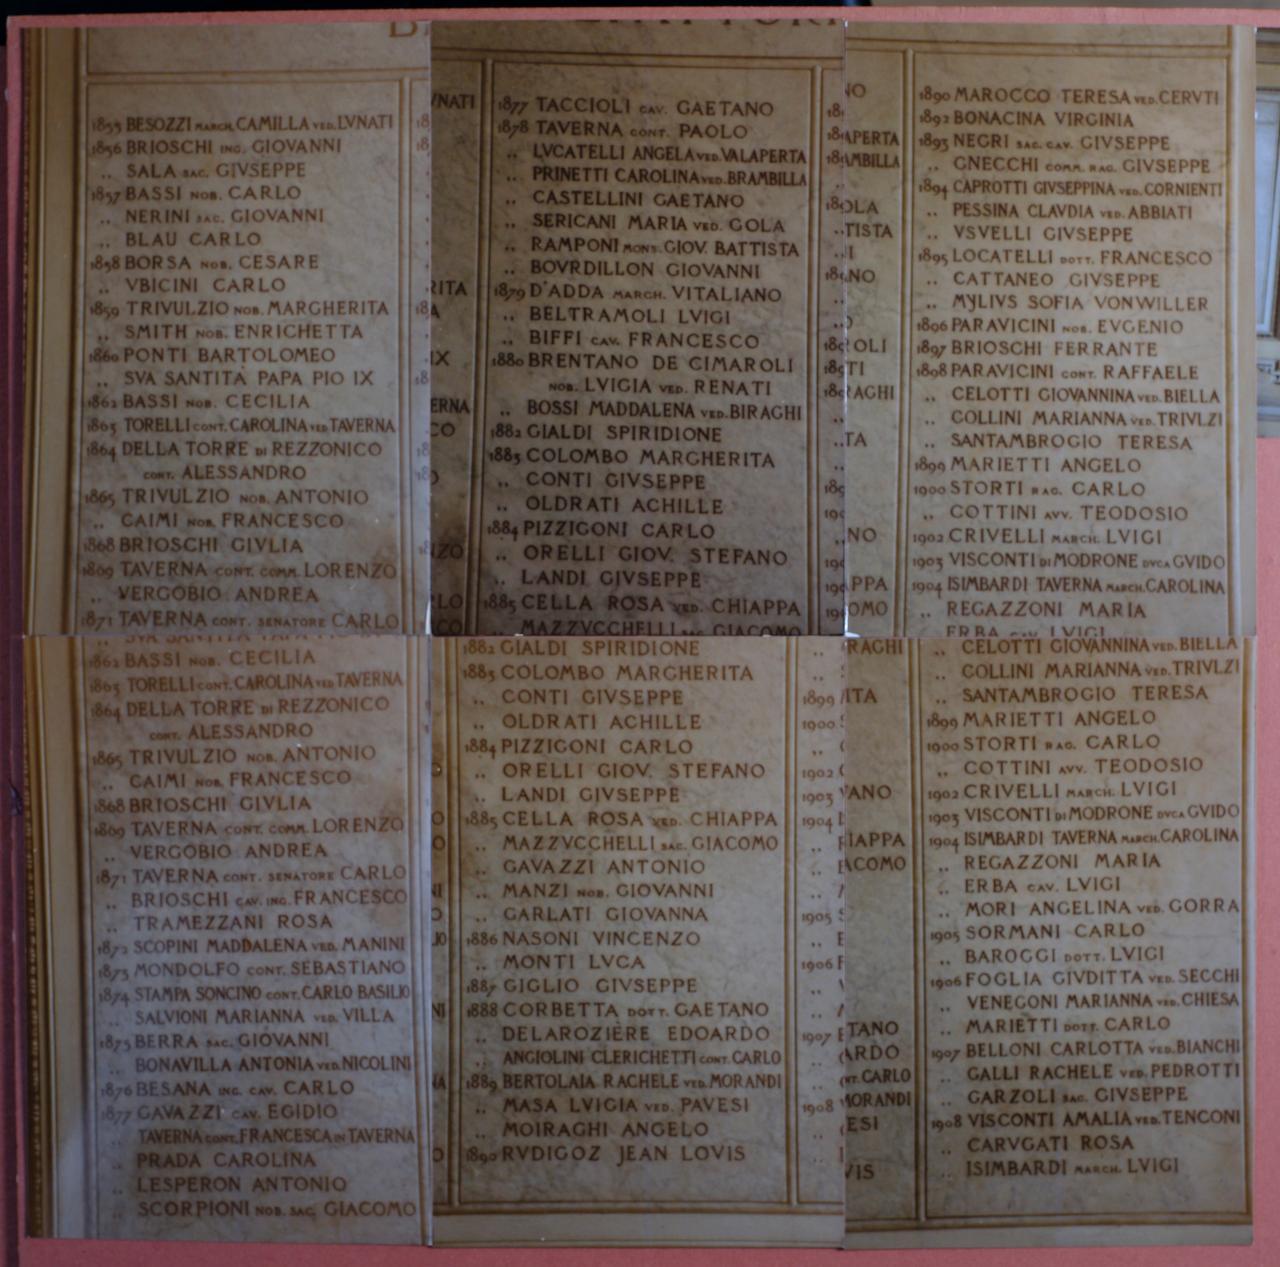 1855 BESOZZI MARCH. CAMILLA VED. LVNATI
1856 BRIOSCHI ING. GIOVANNI
.. SALA SAC. GIVSEPPE
1857 BASSI NOB. CARLO
.. NERINI SAC. GIOVANNI
.. BLAU CARLO
1858 BORSA NOB. CESARE
.. VBICINI CARLO
1859 TRIVULZIO NOB. MARGHERITA
.. SMITH NOB. ENRICHETTA
1860 PONTI BARTOLOMEO
.. SVA SANTITÀ PAPA PIO IX
1862 BASSI NOB. CECILIA
1863 TORELLI CONT. CAROLINA VED TAVERNA
1864 DELLA TORRE DI REZZONICO
CONT. ALESSANDRO
1865 TRIVULZIO NOB. ANTONIO
.. CAIMI NOB. FRANCESCO
1868 BRIOSCHI GIVLIA
1869 TAVERNA CONT. COMM. LORENZO
.. VERGOBIO ANDREA
1871 TAVERNA CONT. SENATORE CARLO
1877 TACCIOLI CAV. GAETANO
1878 TAVERNA CONT. PAOLO
.. LVCATELLI ANGELA VED. VALAPERTA
.. PRINETTI CAROLINA VED. BRAMBILLA
.. CASTELLINI GAETANO
.. SERICANI MARIA VED. GOLA
.. RAMPONI MONS. GIOV. BATTISTA
.. BOVRDILLON GIOVANNI
1879 D'ADDA MARCH. VITALIANO
.. BELTRAMOLI LVIGI
.. BIFFI CAV. FRANCESCO
1880 BRENTANO DE CIMAROLI
NOB. LVIGIA VED. RENATI
.. BOSSI MADDALENA VED. BIRAGHI
1882 GIALDI SPIRIDIONE
1883 COLOMBO MARGHERITA
.. CONTI GIVSEPPE
.. OLDRATI ACHILLE
1884 PIZZIGONI CARLO
.. ORELLI GIOV. STEFANO
.. LANDI GIVSEPPE
1885 CELLA ROSA VED. CHIAPPA
.. MAZZVCCHELLI SAC. GIACOMO
1890 MAROCCO TERESA VED. CERVTI
1892 BONACINA VIRGINIA
1893 NEGRI SAC. CAV. GIVSEPPE
.. GNECCHI COMM. RAG. GIVSEPPE
1894 CAPROTTI GIVSEPPINA VED. CORNIENTI
.. PESSINA CLAVDIA VED. ABBIATI
.. VSVELLI GIVSEPPE
1895 LOCATELLI DOTT. FRANCESCO
.. CATTANEO GIVSEPPE
.. MYLIVS SOFIA VONWILLER
1896 PARAVICINI NOB. EVGENIO
1897 BRIOSCHI FERRANTE
1898 PARAVICINI CONT. RAFFAELE
.. CELOTTI GIOVANNINA VED. BIELLA
.. COLLINI MARIANNA VED. TRIVLZI
.. SANTAMBROGIO TERESA
1899 MARIETTI ANGELO
1900 STORTI RAG. CARLO
.. COTTINI AVV. TEODOSIO
1902 CRIVELLI MARCH. LVIGI
1903 VISCONTI DI MODRONE DVCA GVIDO
1904 ISIMBARDI TAVERNA MARCH. CAROLINA
.. REGAZZONI MARIA
ERBA CAV. LVIGI
SVA SANTITÀ PAPA PIO IX
1862 BASSI NOB. CECILIA
1863 TORELLI CONT. CAROLINA VED TAVERNA
1864 DELLA TORRE DI REZZONICO
CONT. ALESSANDRO
1865 TRIVULZIO NOB. ANTONIO
.. CAIMI NOB. FRANCESCO
1868 BRIOSCHI GIVLIA
1869 TAVERNA CONT. COMM. LORENZO
.. VERGOBIO ANDREA
1871 TAVERNA CONT. SENATORE CARLO
.. BRIOSCHI CAV. ING. FRANCESCO
.. TRAMEZZANI ROSA
1872 SCOPINI MADDALENA VED. MANINI
1873 MONDOLFO CONT. SEBASTIANO
1874 STAMPA SONCINO CONT. CARLO BASILIO
.. SALVIONI MARIANNA VED. VILLA
1875 BERRA SAC. GIOVANNI
.. BONAVILLA ANTONIA VED. NICOLINI
1876 BESANA ING. CAV. CARLO
1877 GAVAZZI CAV. EGIDIO
.. TAVERNA CONT. FRANCESCA IN TAVERNA
.. PRADA CAROLINA
.. LESPERON ANTONIO
.. SCORPIONI NOB. SAC. GIACOMO
1882 GIALDI SPIRIDIONE
1883 COLOMBO MARGHERITA
.. CONTI GIVSEPPE
.. OLDRATI ACHILLE
1884 PIZZIGONI CARLO
.. ORELLI GIOV. STEFANO
.. LANDI GIVSEPPE
1885 CELLA ROSA VED. CHIAPPA
.. MAZZVCCHELLI SAC. GIACOMO
.. GAVAZZI ANTONIO
.. MANZI NOB. GIOVANNI
.. GARLATI GIOVANNA
1886 NASONI VINCENZO
.. MONTI LVCA
1887 GIGLIO GIVSEPPE
1888 CORBETTA DOTT. GAETANO
.. DELAROZIÈRE EDOARDO
.. ANGIOLINI CLERICHETTI CONT. CARLO
1889 BERTOLAIA RACHELE VED. MORANDI
.. MASA LVIGIA VED. PAVESI
.. MOIRAGHI ANGELO
1890 RVDIGOZ JEAN LOVIS
.. CELOTTI GIOVANNINA VED. BIELLA
.. COLLINI MARIANNA VED. TRIVLZI
.. SANTAMBROGIO TERESA
1899 MARIETTI ANGELO
1900 STORTI RAG. CARLO
.. COTTINI AVV. TEODOSIO
1902 CRIVELLI MARCH. LVIGI
1903 VISCONTI DI MODRONE DVCA GVIDO
1904 ISIMBARDI TAVERNA MARCH. CAROLINA
.. REGAZZONI MARIA
.. ERBA CAV. LVIGI
.. MORI ANGELINA VED. GORRA
1905 SORMANI CARLO
.. BAROGGI DOTT. LVIGI
1906 FOGLIA GIVDITTA VED. SECCHI
.. VENEGONI MARIANNA VED. CHIESA
.. MARIETTI DOTT. CARLO
1907 BELLONI CARLOTTA VED. BIANCHI
.. GALLI RACHELE VED. PEDROTTI
.. GARZOLI SAC. GIVSEPPE
1908 VISCONTI AMALIA VED. TENCONI
.. CARVGATI ROSA
.. ISIMBARDI MARCH. LVIGI